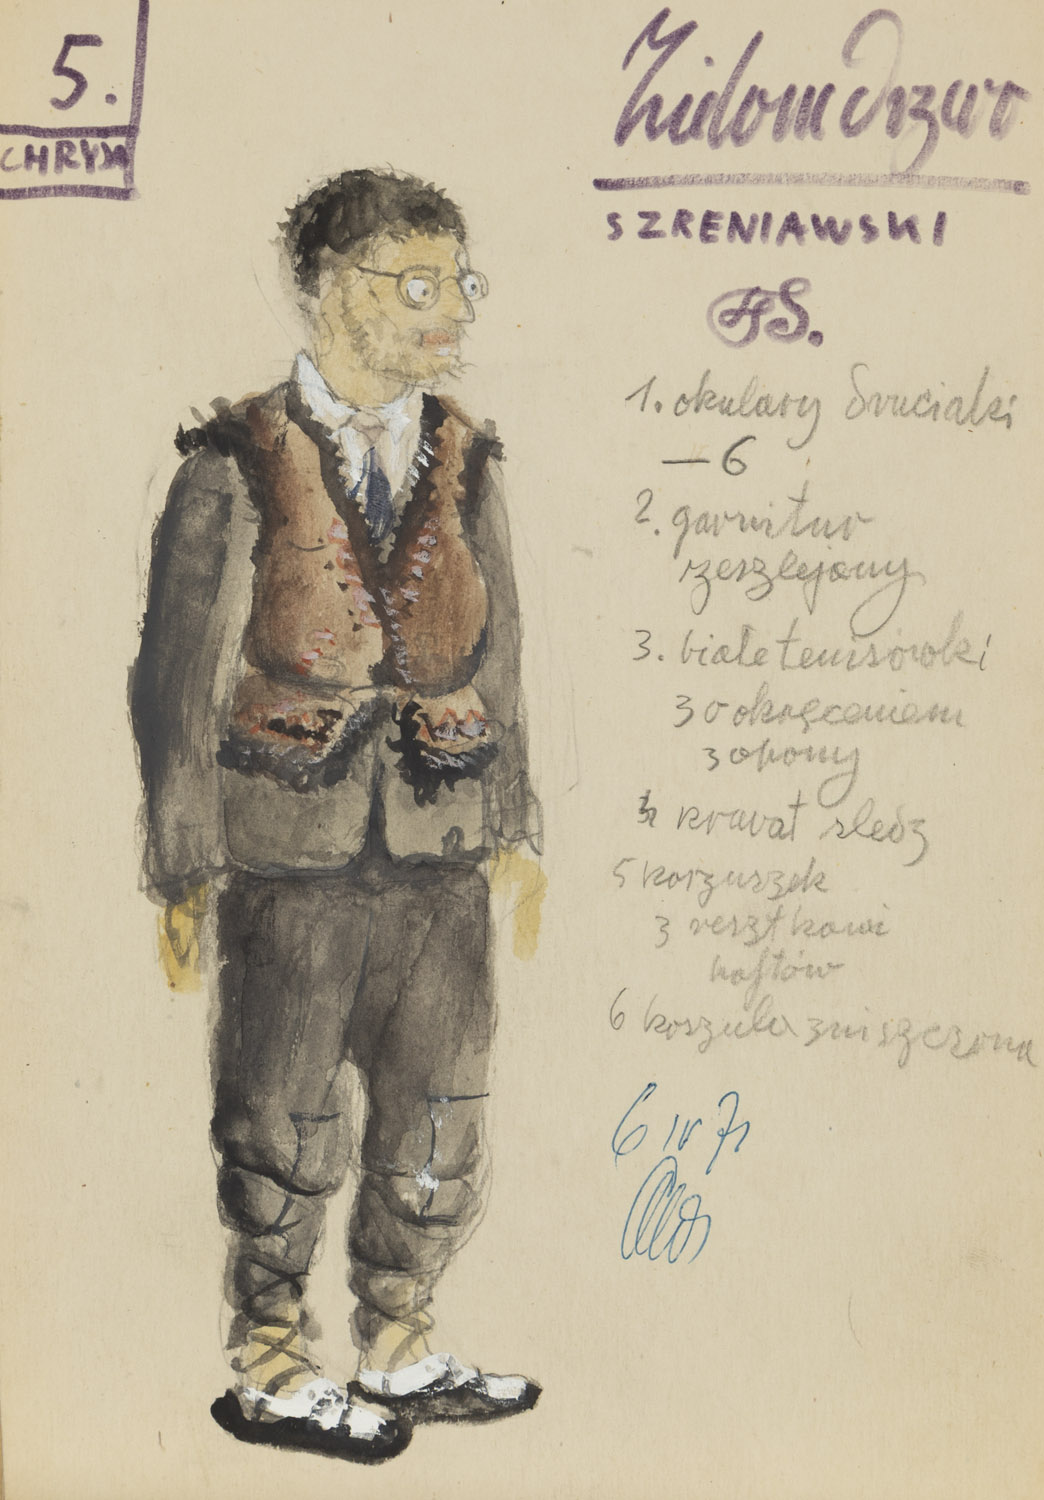 5.
CHRYJA
SZRENIAWSKI
FS.
1. okulary druciaki
— 6
2. garnitur
zeszlajany
3. białe tenisówki
z okręceniem
z opony
4 krawat śledź
5 kożuszek
z resztkami
haftów
6 koszula zniszczona
6 IV 71